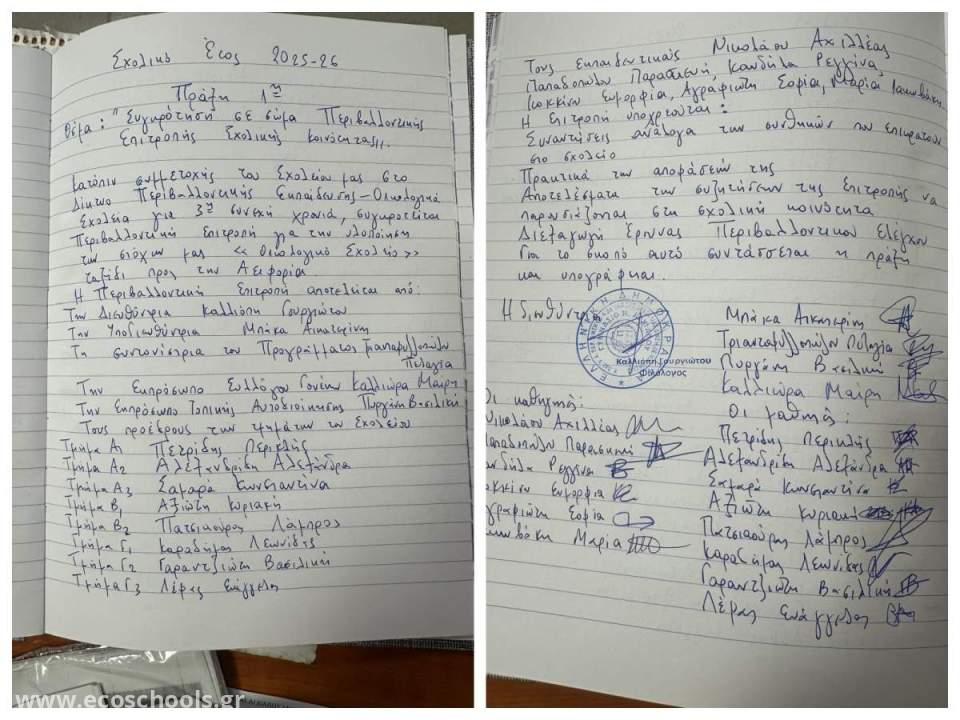 Σχολικό Έτος 2025-26
Πράξη 1η
Θέμα: "Συγκρότηση σε σώμα Περιβαλλοντικής
Επιτροπής Σχολικής Κοινότητας".
Κατόπιν συμμετοχής του Σχολείου μας στο
Δίκτυο Περιβαλλοντικής Εκπαίδευσης - Οικολογικά
Σχολεία για 3η συνεχή χρονιά, συγκροτείται
Περιβαλλοντική Επιτροπή για την υλοποίηση
των στόχων μας «Οικολογικό Σχολείο»
ταξίδι προς την Αειφορία
Η Περιβαλλοντική Επιτροπή αποτελείται από:
Την Διευθύντρια Καλλιόπη Γουργιώτου
Την Υποδιευθύντρια Μπάκα Αικατερίνη
Τη συντονίστρια του Προγράμματος Τριανταφυλλοπούλου
Πελαγία
Την Εκπρόσωπο Συλλόγου Γονέων Καλλιώρα Μαίρη
Την Εκπρόσωπο Τοπικής Αυτοδιοίκησης Πυργάκη Βασιλική
Τους προέδρους των τμημάτων του Σχολείου
Τμήμα Α1 Πετρίδης Περικλής
Τμήμα Α2 Αλεξανδρίδη Αλεξάνδρα
Τμήμα Α3 Σαμαρά Κωνσταντίνα
Τμήμα Β1 Αξιώτη Κυριακή
Τμήμα Β2 Πατσιαούρας Λάμπρος
Τμήμα Γ1 Καραδήμος Λεωνίδας
Τμήμα Γ2 Γαραντζιώτη Βασιλική
Τμήμα Γ3 Λέρας Ευάγγελος
Τους εκπαιδευτικούς Νικολάου Αχιλλέας
Παπαδοπούλου Παρασκευή, Κανδήλα Ρεγγίνα,
Κοκκίνου Ευμορφία, Αγραφιώτη Σοφία, Μαρία Ιακωβάκη.
Η Επιτροπή υποχρεούται:
Συναντήσεις ανάλογα των συνθηκών που επικρατούν
στο σχολείο
Πρακτικά των αποφάσεών της
Αποτελέσματα των συζητήσεων της Επιτροπής να
παρουσιάζονται στη σχολική κοινότητα
Διεξαγωγή Έρευνας Περιβαλλοντικού Ελέγχου
Για το σκοπό αυτό συντάσσεται η πράξη
και υπογράφεται.
Η Διευθύντρια
ΕΛΛΗΝΙΚΗ ΔΗΜΟΚΡΑΤΙΑ
Καλλιόπη Γουργιώτου
Φιλόλογος
Μπάκα Αικατερίνη
Τριανταφυλλοπούλου Πελαγία
Πυργάκη Βασιλική
Καλλιώρα Μαίρη
Οι καθηγητές:
Νικολάου Αχιλλέας
Παπαδοπούλου Παρασκευή
Κανδήλα Ρεγγίνα
Κοκκίνου Ευμορφία
Αγραφιώτη Σοφία
Ιακωβάκη Μαρία
Οι μαθητές:
Πετρίδης Περικλής
Αλεξανδρίδη Αλεξάνδρα
Σαμαρά Κωνσταντίνα
Αξιώτη Κυριακή
Πατσιαούρης Λάμπρος
Καραδήμος Λεωνίδας
Γαραντζιώτη Βασιλική
Λέρας Ευάγγελος
www.ecoschools.gr